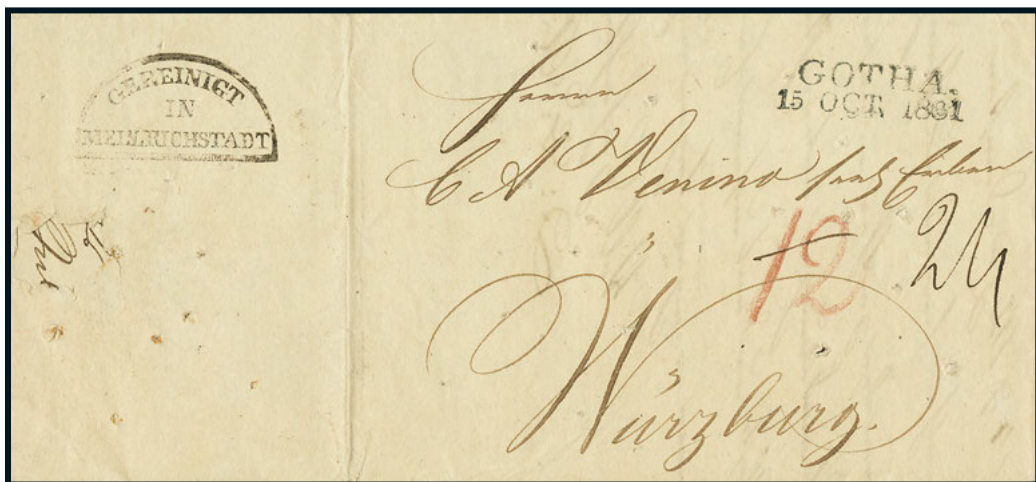 GEREINIGT
IN
MELLRICHSTADT
GOTHA.
15 OCT 1831
Herrn
C A Venino sel Erben
12
24
Würzburg.